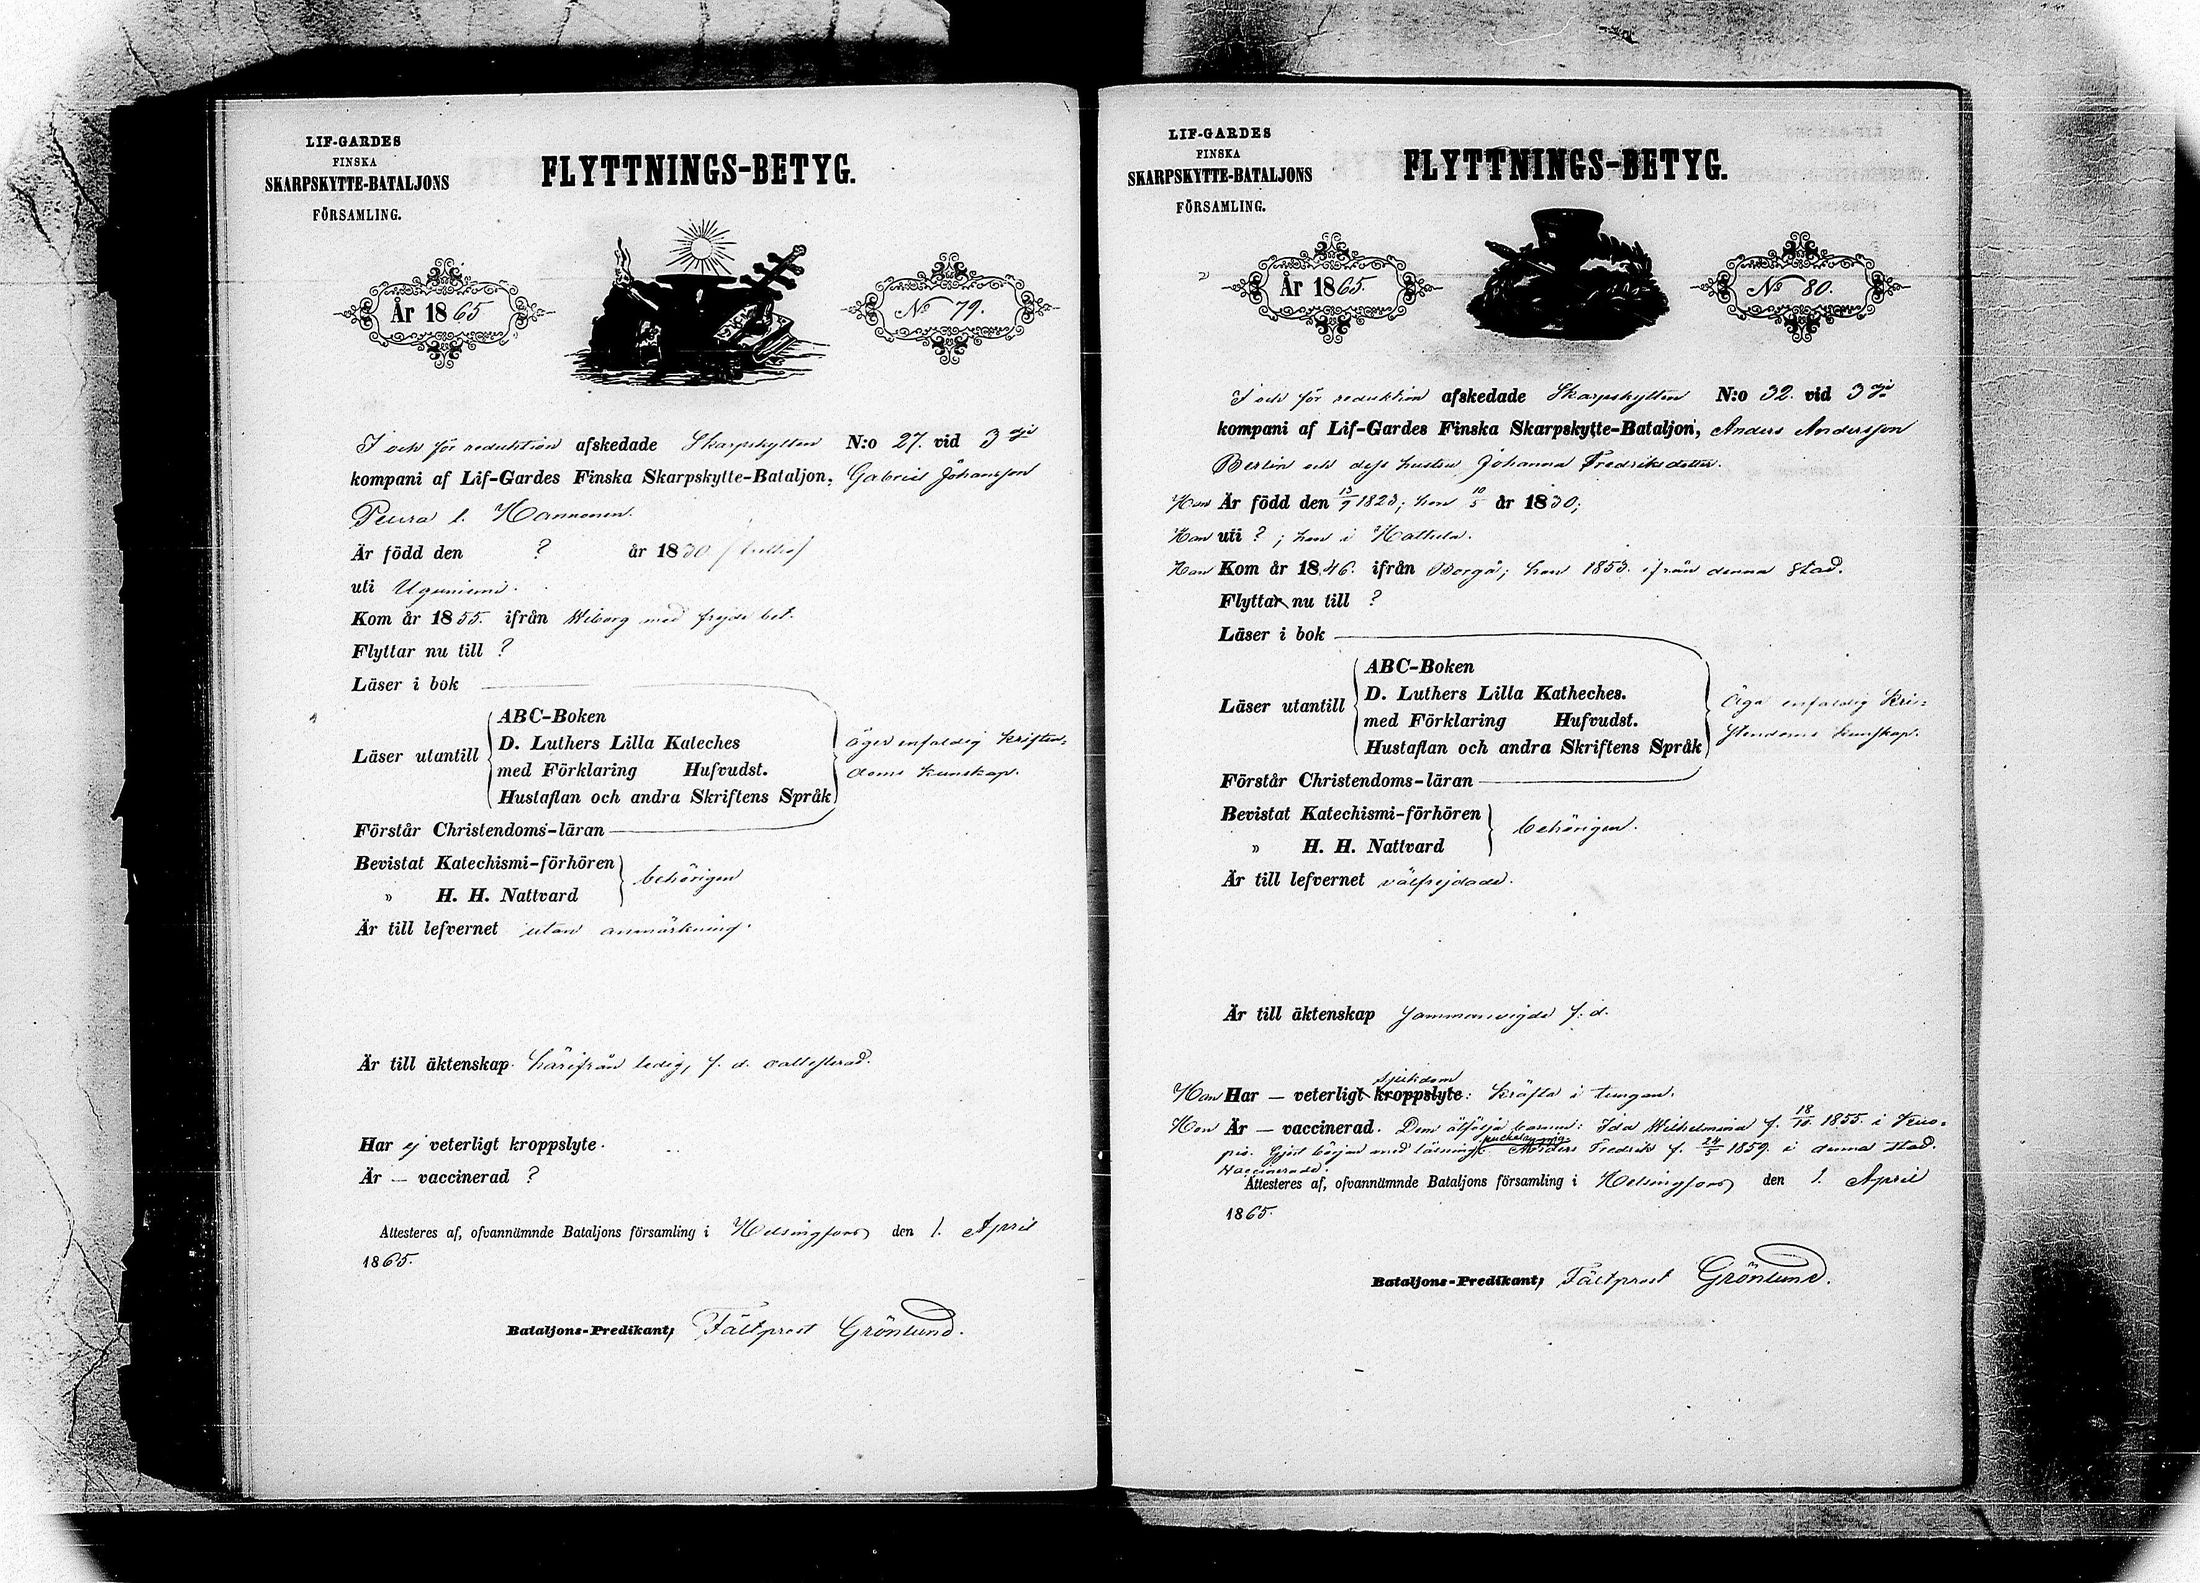 LIF-GARDES
FINSKA
SKARPSKYTTE-BATALJONS
FÖRSAMLING.
FLYTTNINGS-BETYG.
År 1865
No 79.
I och för reduktion afskedade Skarpskytten N:o 27. vid 3dje
kompani af Lif-Gardes Finska Skarpskytte-Bataljon, Gabriel Johansson
Peura l. Hannonen.
Är född den ? år 1830
uti
Kom år 1855. ifrån Wiborg med frejde bet.
Flyttar nu till ?
Läser i bok
Läser utantill
ABC-Boken
D. Luthers Lilla Kateches
med Förklaring Hufvudst.
Hustaflan och andra Skriftens Språk
äger enfaldig kristen-
doms kunskap.
Förstår Christendoms-läran
Bevistat Katechismi-förhören
» H. H. Nattvard
behörigen
Är till lefvernet utan anmärkning.
Är till äktenskap härifrån ledig, f. d. oattesterad.
Har ej veterligt kroppslyte.
Är — vaccinerad ?
Attesteres af, ofvannämnde Bataljons församling i Helsingfors den 1. April
1865.
Bataljons-Predikant, Fältprost Grönlund.
LIF-GARDES
FINSKA
SKARPSKYTTE-BATALJONS
FÖRSAMLING.
FLYTTNINGS-BETYG.
År 1865.
No 80.
I och för reduktion afskedade Skarpskytten N:o 32. vid 3dje
kompani af Lif-Gardes Finska Skarpskytte-Bataljon, Anders Andersson
Berlin och dess hustru Johanna Fredriksdotter.
Han Är född den 13/9 1823; hon 10/5 år 1830;
Han uti ?; hon i Hattula.
Han Kom år 1846. ifrån Borgå; hon 1853. ifrån denna stad.
Flyttar nu till ?
Läser i bok
Läser utantill
ABC-Boken
D. Luthers Lilla Katheches.
med Förklaring Hufvudst.
Hustaflan och andra Skriftens Språk
Äga enfaldig kri-
stendoms kunskap.
Förstår Christendoms-läran
Bevistat Katechismi-förhören
» H. H. Nattvard
behörigen.
Är till lefvernet välfrejdade.
Är till äktenskap sammanvigde f. d.
sjukdom
Han Har — veterligt kroppslyte: kräfta i tungan.
Hon Är — vaccinerad. Dem åtfölja barnen: Ida Wilhelmina f. 18/10 1855. i Kuo-
pio. Gjort början med läsning. Anders Fredrik f. 24/5 1859. i denna stad.
Vaccinerade.
Attesteres af, ofvannämnde Bataljons församling i Helsingfors den 1. April
1865.
Bataljons-Predikant, Fältprost Grönlund.